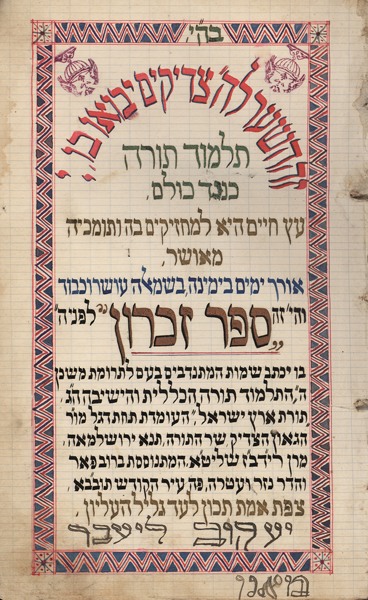 בה״י
זה השער לה׳ צדיקים יבואו בו
תלמוד תורה
כנגד כולם,
עץ חיים היא למחזיקים בה ותומכיה
מאושר,
אורך ימים בימינה, בשמאלה עושר וכבוד
והי׳ זה ״ספר זכרון״ לפני ה׳
בו יכתב שמות המתנדבים בעם לתרומת משכן
ה׳, התלמוד תורה הכללית והישיבה הג׳
תורת ארץ ישראל, העומדת תחת הגל מו״ר
הגאון הצדיק, שר התורה, תנא ירושלמאה,
מרן רידב״ז שליט״א, המתנוססת ברוב פאר
והדר נזר ועטרה, פה עיר הקודש תובב״א,
צפת אמת תכון לעד גליל העליון,
יעקוב ליעבר